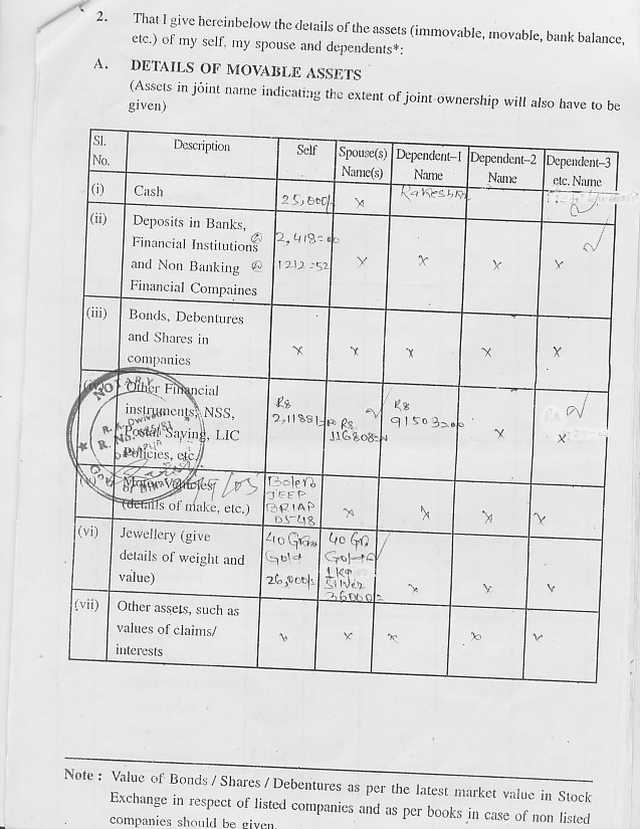 2. That I give hereinbelow the details of the assets (immovable, movable, bank balance,
etc.) of my self, my spouse and dependents*:
A. DETAILS OF MOVABLE ASSETS
(Assets in joint name indicating the extent of joint ownership will also have to be
given)
Sl. No. Description Self Spouse(s) Name(s) Dependent–1 Name Dependent–2 Name Dependent–3 etc. Name
(i) Cash 25,000/- x
(ii) Deposits in Banks,
Financial Institutions 2,418=00
and Non Banking 1212=52 x x x x
Financial Compaines
(iii) Bonds, Debentures
and Shares in
companies x x x x x
Other Financial Rs Rs
instruments, NSS, 2,11881= Rs 91503=00
Postal Saying, LIC 116808= x x
Policies, etc.
Motor Vehicles Bolero
(details of make, etc.) JEEP
BRIAP x x x x
0548
(vi) Jewellery (give 40 Gm 40 Gm
details of weight and Gold Gold
value) 26,000/- 1 kg x x x
Silver
36000/=
(vii) Other assets, such as
values of claims/ x x x x x
interests
NOTARY
Note : Value of Bonds / Shares / Debentures as per the latest market value in Stock
Exchange in respect of listed companies and as per books in case of non listed
companies should be given.